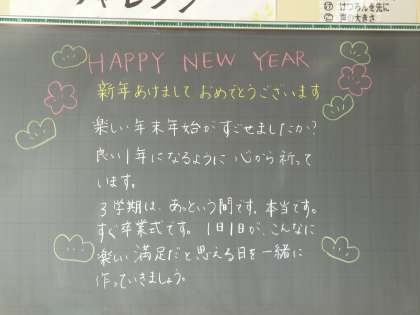 けつろんを先に
声の大きさ
HAPPY NEW YEAR
新年あけまして おめでとうございます
楽しい年末年始がすごせましたか?
良い1年になるように 心から祈って
います。
3学期は、あっという間です。本当です。
すぐ卒業式です。 1日1日が、こんなに
楽しい満足だと思える日を一緒に
作っていきましょう。